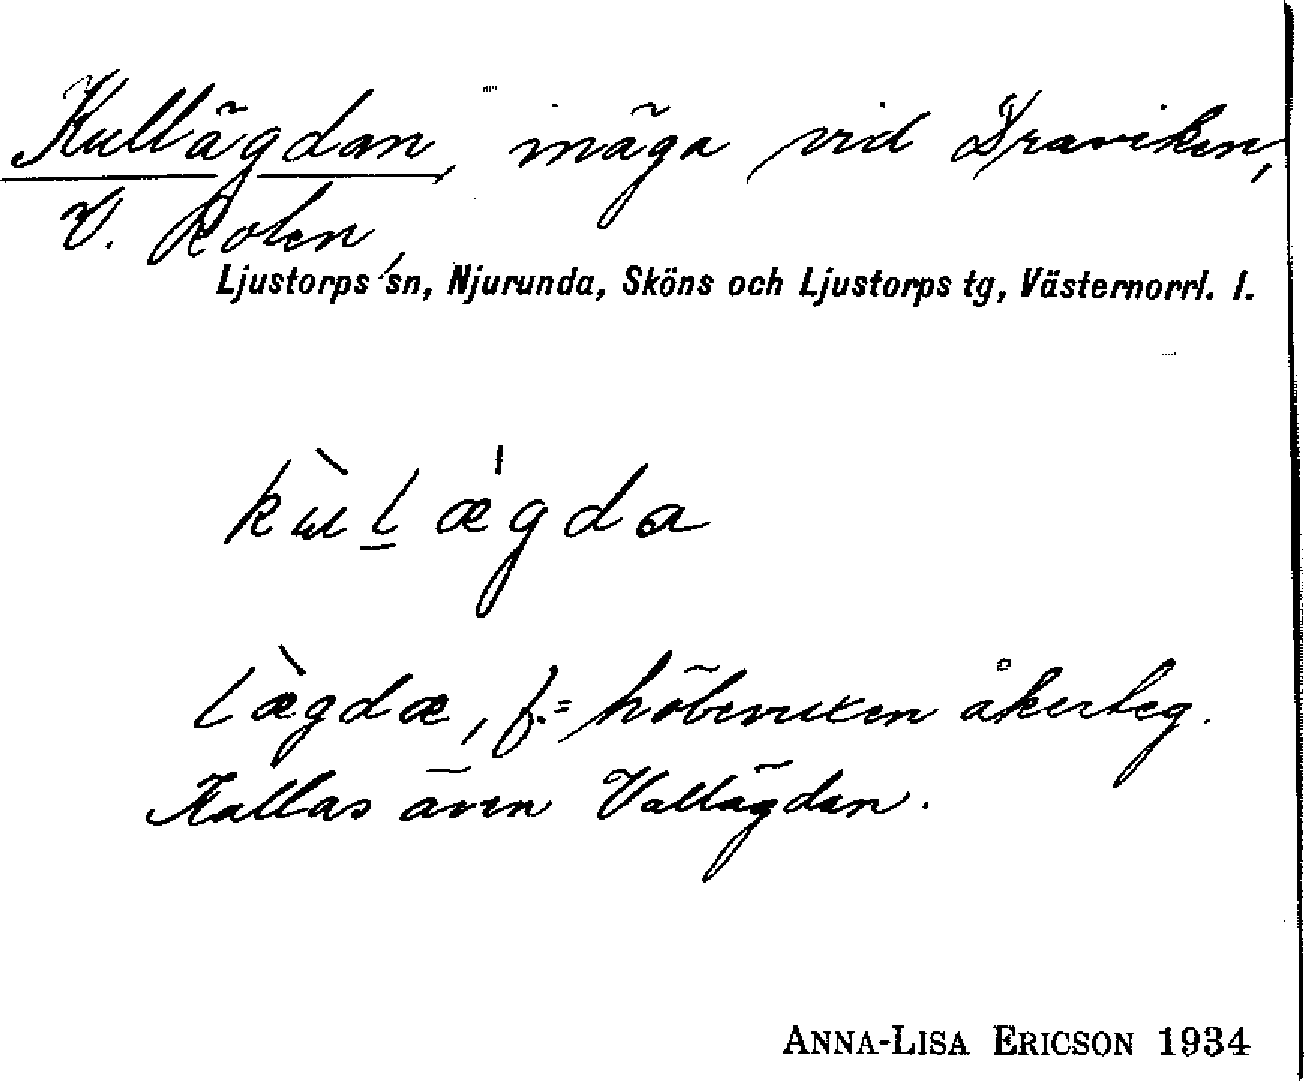 Kullägdan, inäga vid Draviken,
V. Kolen,
Ljustorps sn, Njurunda, Sköns och Ljustorps tg, Västernorrl. l.
kùlǀægda
lægdæ, f. = höbevuxen åkerteg.
Kallas även Vallägdan.
ANNA-LISA ERICSON 1934